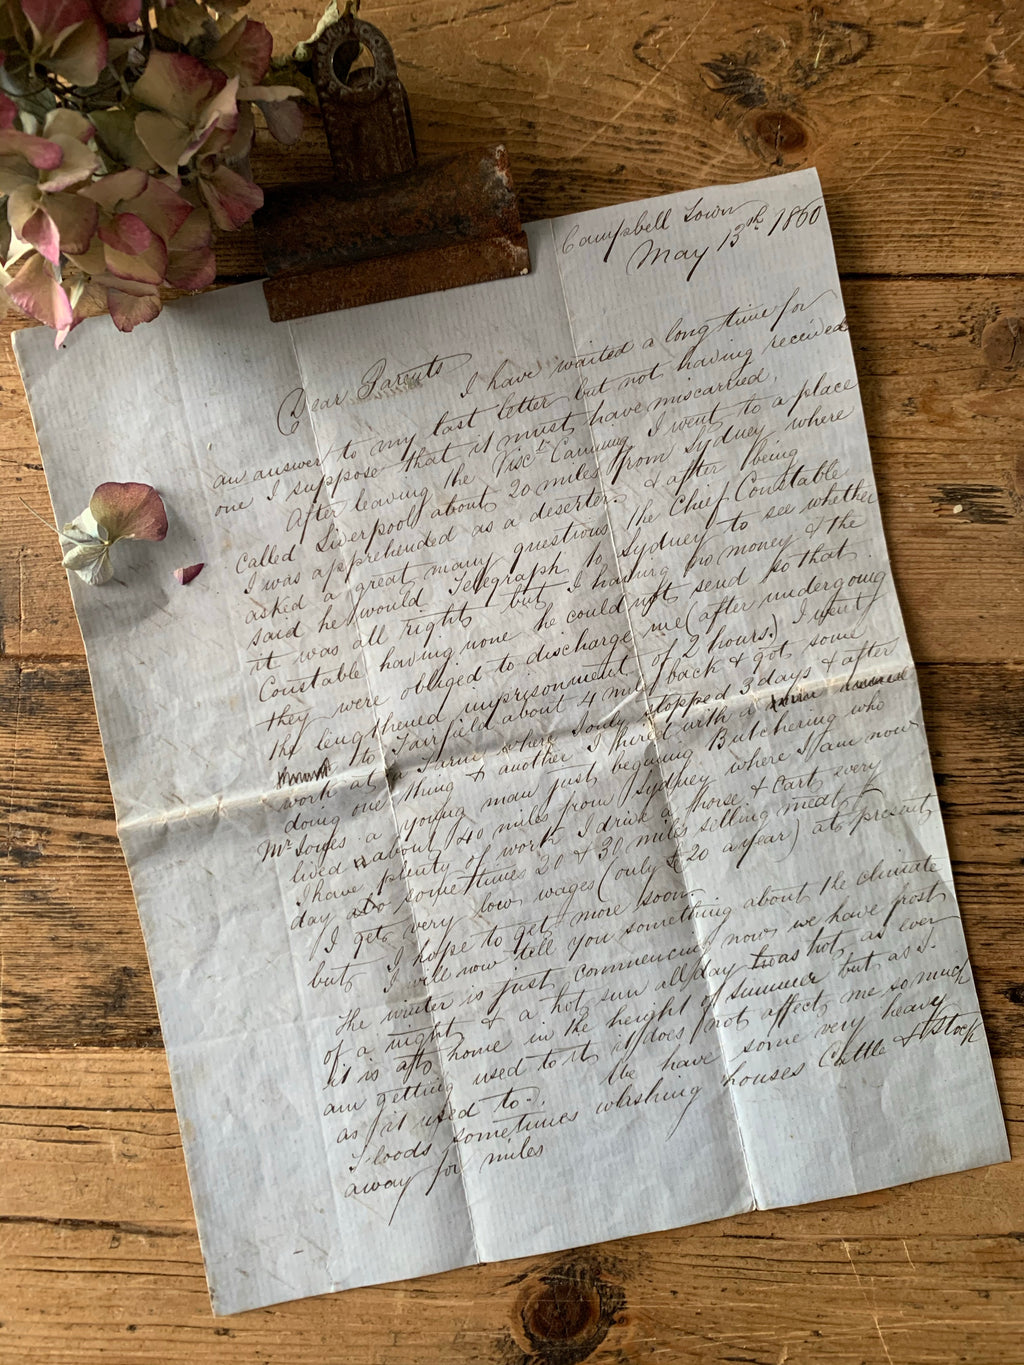 Campbell Town
May 13th 1860
Dear Parents I have waited a long time for
an answer to my last letter but not having received
one I suppose that it must have miscarried,
After leaving the Visct Canning I went to a place
called Liverpool about 20 miles from Sydney where
I was apprehended as a deserter & after being
asked a great many questions the Chief Constable
said he would Telegraph to Sydney to see whether
it was all right but I having no money & the
Constable having none he could not send so that
they were obliged to discharge me (after undergoing
the lengthened imprisonment of 2 hours.) I went
to Fairfield about 4 miles back & got some
work at a Farm where I only stopped 3 days & after
doing one thing & another I hired with a
Mr Jones a young man just beginning Butchering who
lived about 40 miles from Sydney where I am now
I have plenty of work I drive a horse & Cart every
day sometimes 20 & 30 miles selling meat
I get very low wages (only £20 a year) at present
but I hope to get more soon
I will now tell you something about the climate
The winter is just commencing now we have frost
of a night & a hot sun all day as hot as ever
it is at home in the height of Summer but as I
am getting used to it it does not affect me so much
as it used to. We have some very heavy
floods sometimes washing houses Cattle & Stock
away for miles